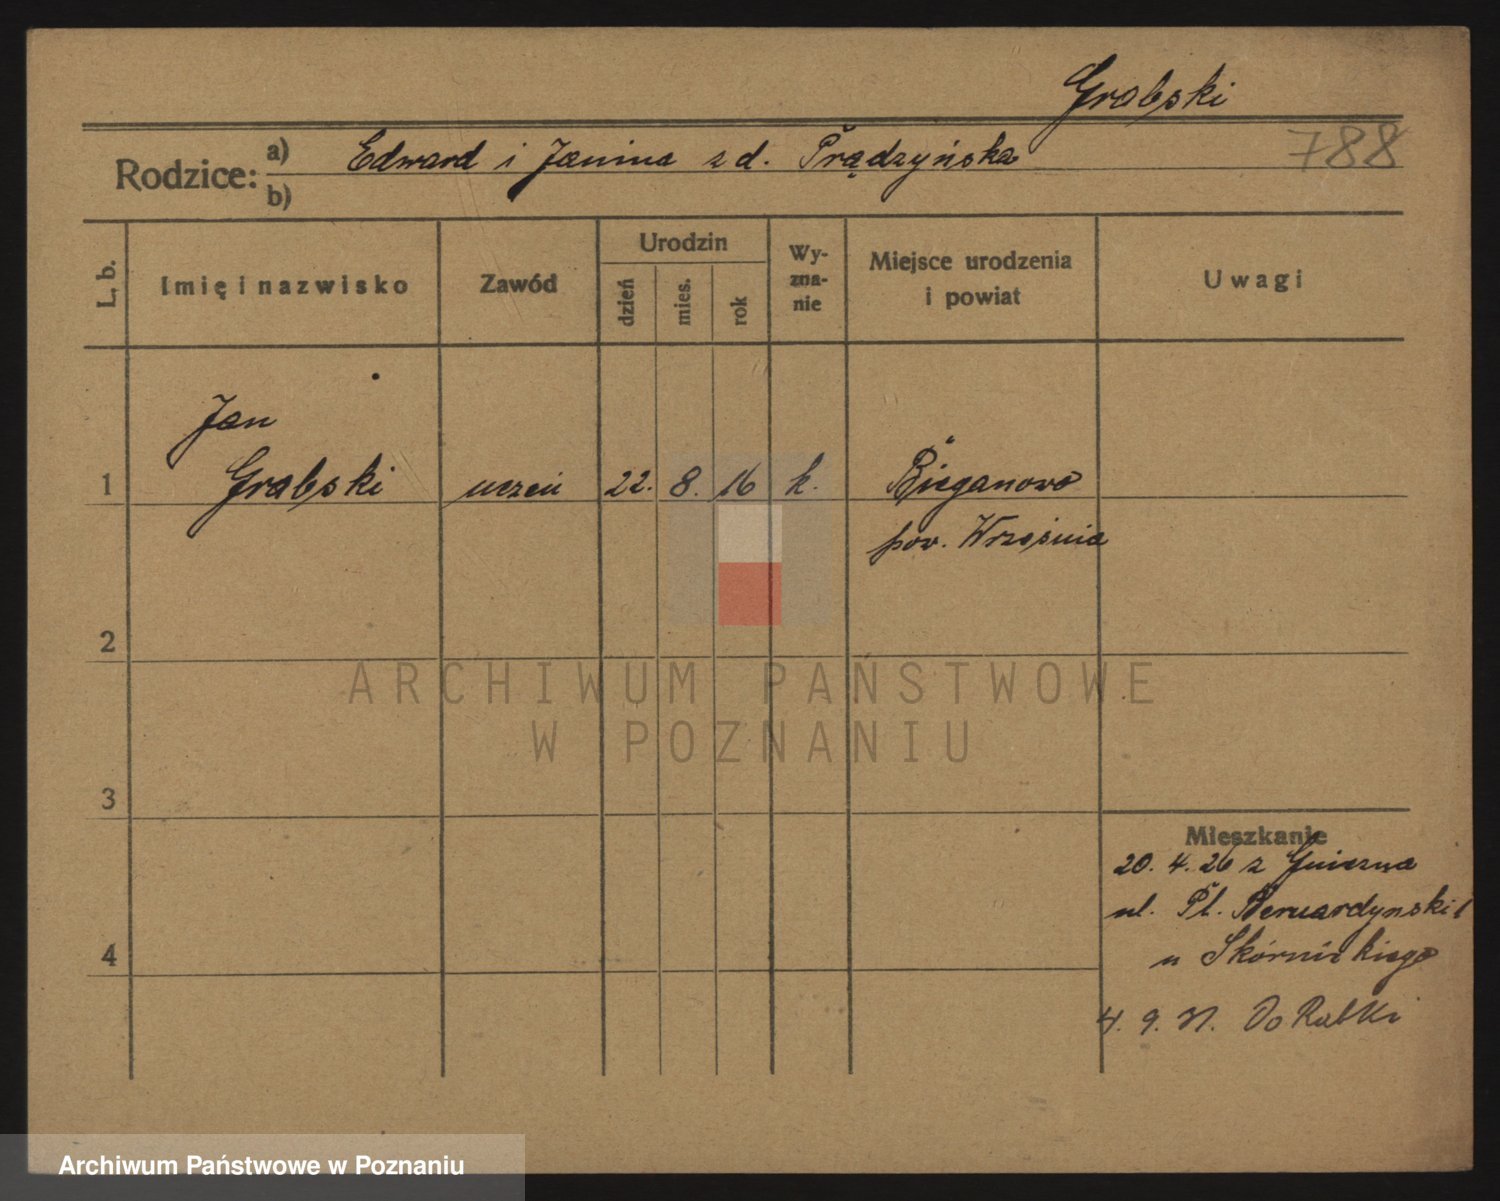 Grabski
788
Rodzice: a) Edward i Janina z d. Prądzyńska
b)
L. b. Imię i nazwisko Zawód Urodzin dzień mies. rok Wy-zna-nie Miejsce urodzenia i powiat Uwagi
Jan
1 Grabski uczeń 22. 8. 16 k. Bieganowo
pow. Września
2
ARCHIWUM PAŃSTWOWE
W POZNANIU
3
Mieszkanie
20. 4. 26 z Gniezna
ul. Pl. Bernardyński 1
4 u Skórnickiego
4. 9. 31. Do Rabki
Archiwum Państwowe w Poznaniu